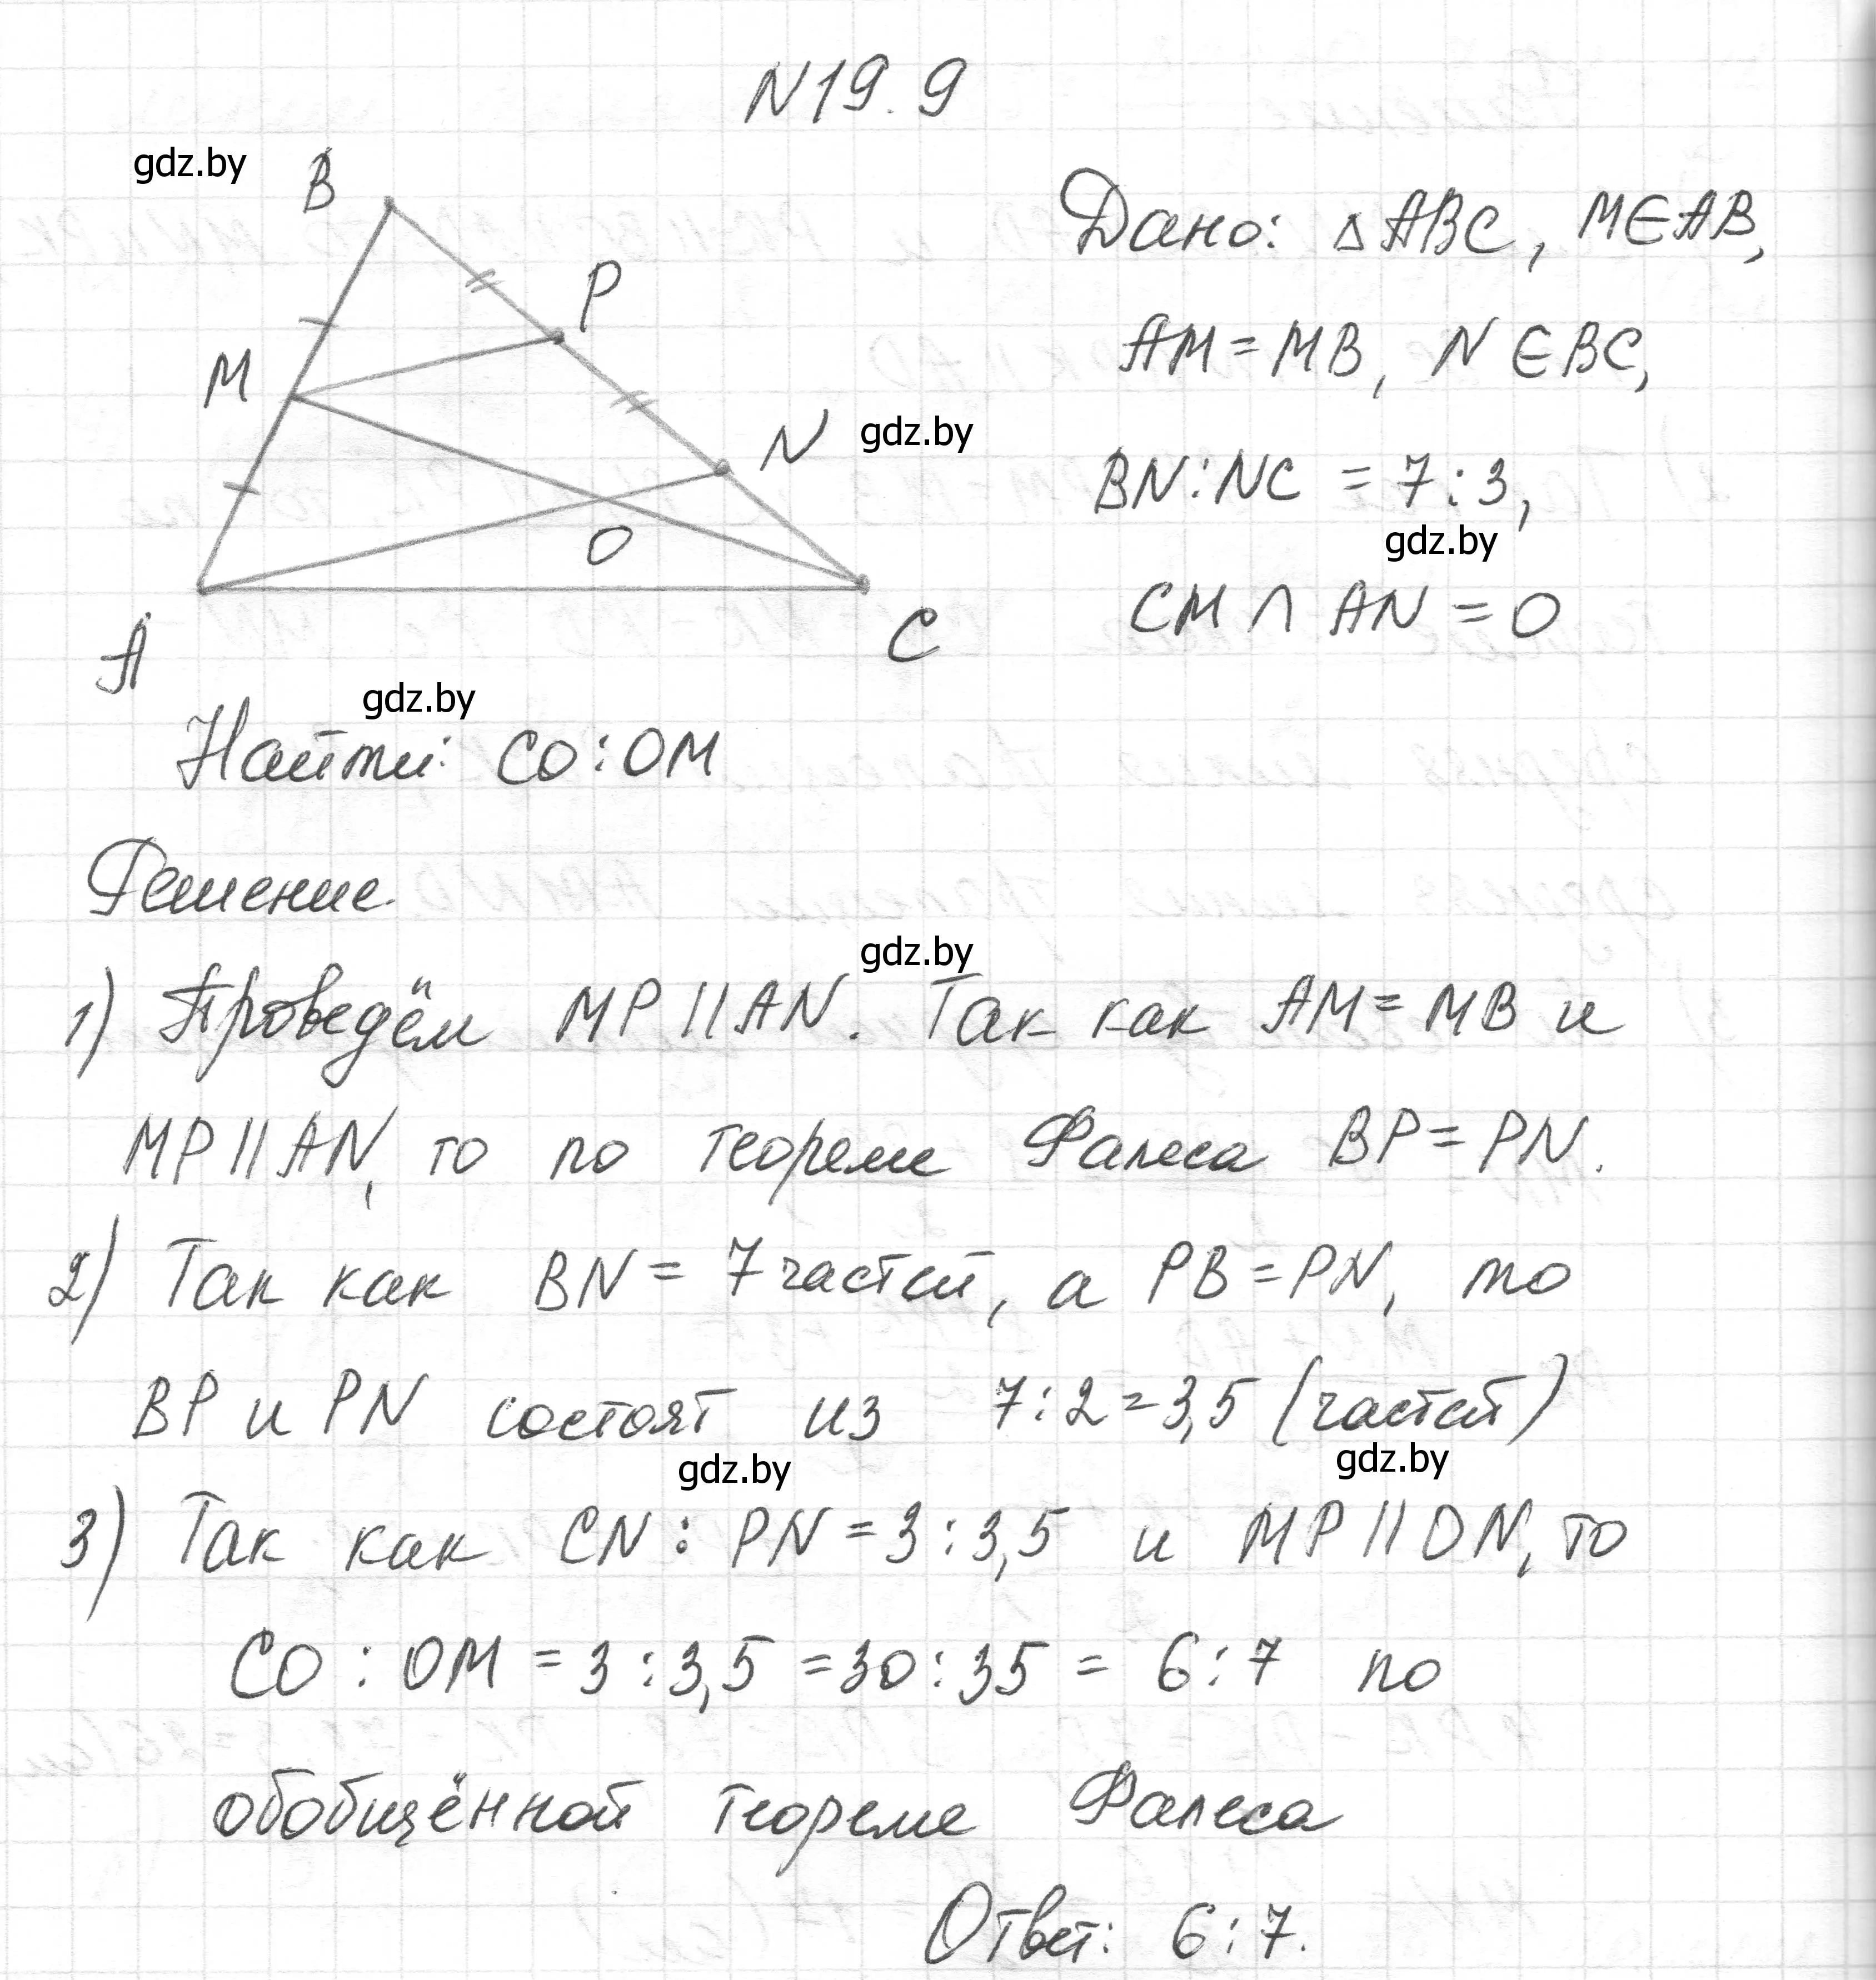 N19.9
gdz.by
B
P
M
N
O
A
C
gdz.by
Дано: △ABC, M∈AB,
AM=MB, N∈BC,
BN:NC = 7:3,
gdz.by
CM ∩ AN = O
gdz.by
Найти: CO:OM
Решение.
gdz.by
1) Проведём MP||AN. Так как AM=MB и
MP||AN, то по теореме Фалеса BP=PN.
2) Так как BN= 7 частей, а PB=PN, то
BP и PN состоят из 7:2=3,5 (частей)
gdz.by gdz.by
3) Так как CN : PN=3:3,5 и MP||ON, то
CO : OM =3:3,5 =30:35= 6:7 по
обобщённой теореме Фалеса
Ответ: 6:7.